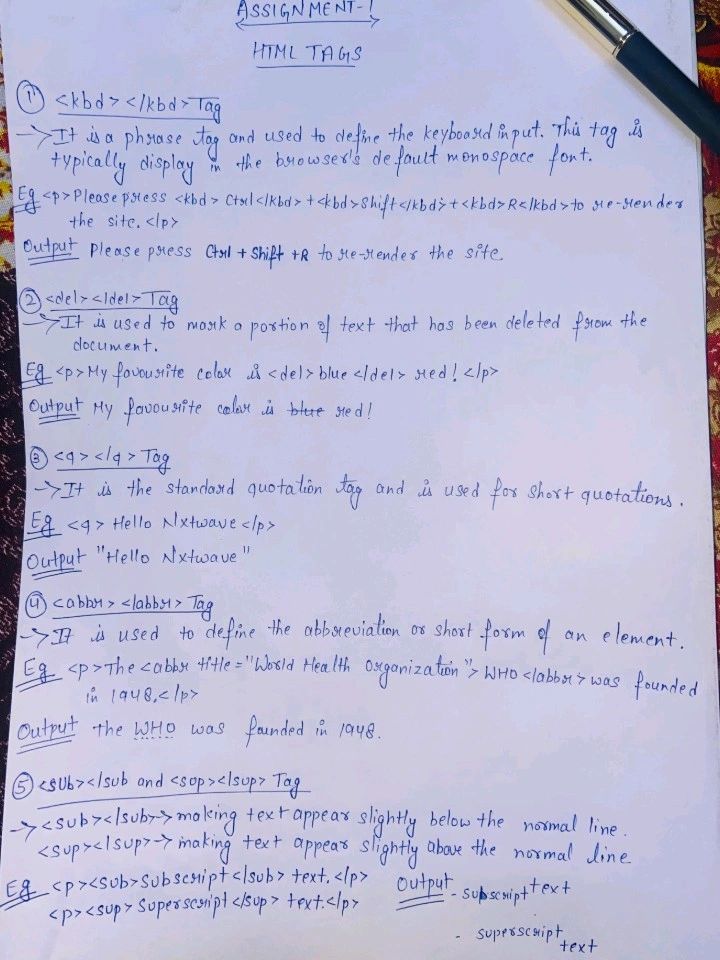 ASSIGNMENT-1
HTML TAGS
① <kbd></kbd> Tag
→ It is a phrase tag and used to define the keyboard input. This tag is
typically display in the browser's default monospace font.
Eg <p>Please press <kbd> Ctrl</kbd>+<kbd>Shift</kbd>+<kbd>R</kbd>to re-render
the site.</p>
Output Please press Ctrl + Shift +R to re-render the site.
② <del></del> Tag
→ It is used to mark a portion of text that has been deleted from the
document.
Eg <p>My favourite color is <del>blue</del> red!</p>
Output My favourite color is blue red!
③ <q></q> Tag
→ It is the standard quotation tag and is used for short quotations.
Eg <q> Hello Nxtwave</p>
Output "Hello Nxtwave"
④ <abbr></abbr> Tag
→ It is used to define the abbreviation or short form of an element.
Eg <p>The <abbr title="World Health Organization"> WHO</abbr> was founded
in 1948.</p>
Output the WHO was founded in 1948.
⑤ <sub></sub and <sup></sup> Tag
→ <sub></sub> → making text appear slightly below the normal line.
<sup></sup> → making text appear slightly above the normal line
Eg <p><sub>Subscript</sub> text.</p> Output - subscript text
<p><sup> Superscript</sup> text.</p>
- superscript text